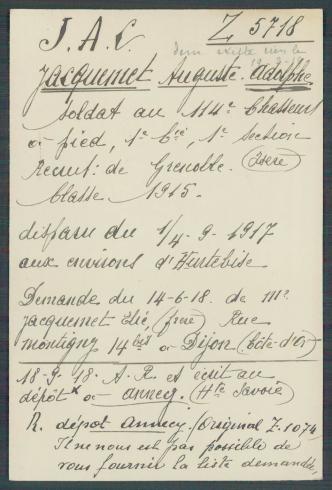 J.A.C. Z 5718
Jacquemet Auguste. Adolphe
soldat au 114e Chasseurs
à pied, 1e Cie, 1e section
Recrut: de Grenoble. (Isère)
Classe 1915.
disparu du 1/4-9-1917
aux environs d'Hurtebise
Demande du 14-6-18. de Mr.
Jacquemet Elié (frère) Rue
Montigny 14 bis à Dijon (Côte-d'Or)
18-9-18. A.R. et écrit au
dépôt x à Annecy. (Hte Savoie)
R. dépot Annecy. (Original Z. 1074)
Il ne nous est pas possible de
vous fournir la liste demandée,